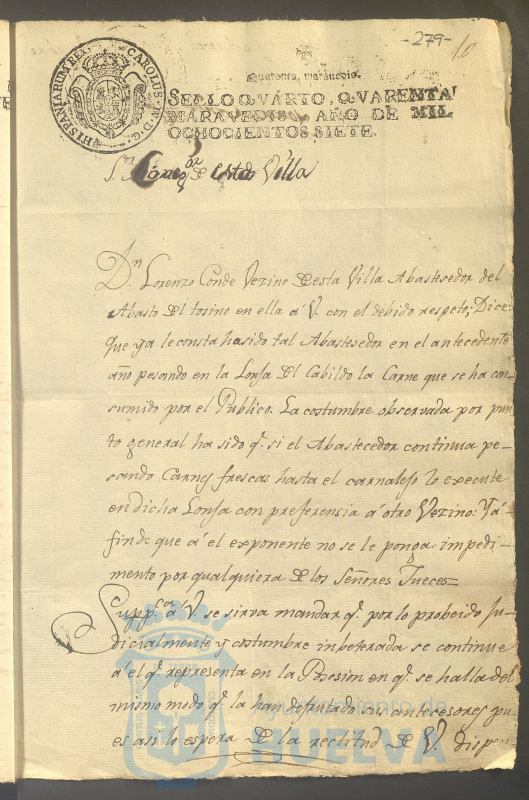 -279-
10
HISPANIARUM REX. CAROLUS IV D. G.
Quarenta maravedis.
SELLO QVARTO, QVARENTA
MARAVEDIS, AÑO DE MIL
OCHOCIENTOS SIETE.
S.or Correg.or de esta Villa
D.n Lorenzo Conde Vezino de esta Villa Abastesedor del
Abasto del tosino en ella á V. con el debido respeto; Dice:
Que ya le consta ha sido tal Abastesedor en el antecedente
año pesando en la Lonja del Cabildo la Carne que se ha con
sumido por el Publico. La costumbre observada por pun
to general ha sido q.e si el Abastecedor continua pe
sando Carnes frescas hasta el carnalejo lo execute
en dicha Lonja con preferencia á otro Vezino: Y á
fin de que á el exponente no se le ponga impedi
mento por qualquiera de los Señores Jueces=
Supp.ca á V. se sirva mandar q.e por lo probeido ju
dicialmente y costumbre inbeterada se continue
á el q.e representa en la Posesion en q.e se halla del
mismo modo q.e la han desfrutado sus antecesores pu
es asi lo espera de la rectitud de V. dispon
Ayuntamiento de
HUELVA